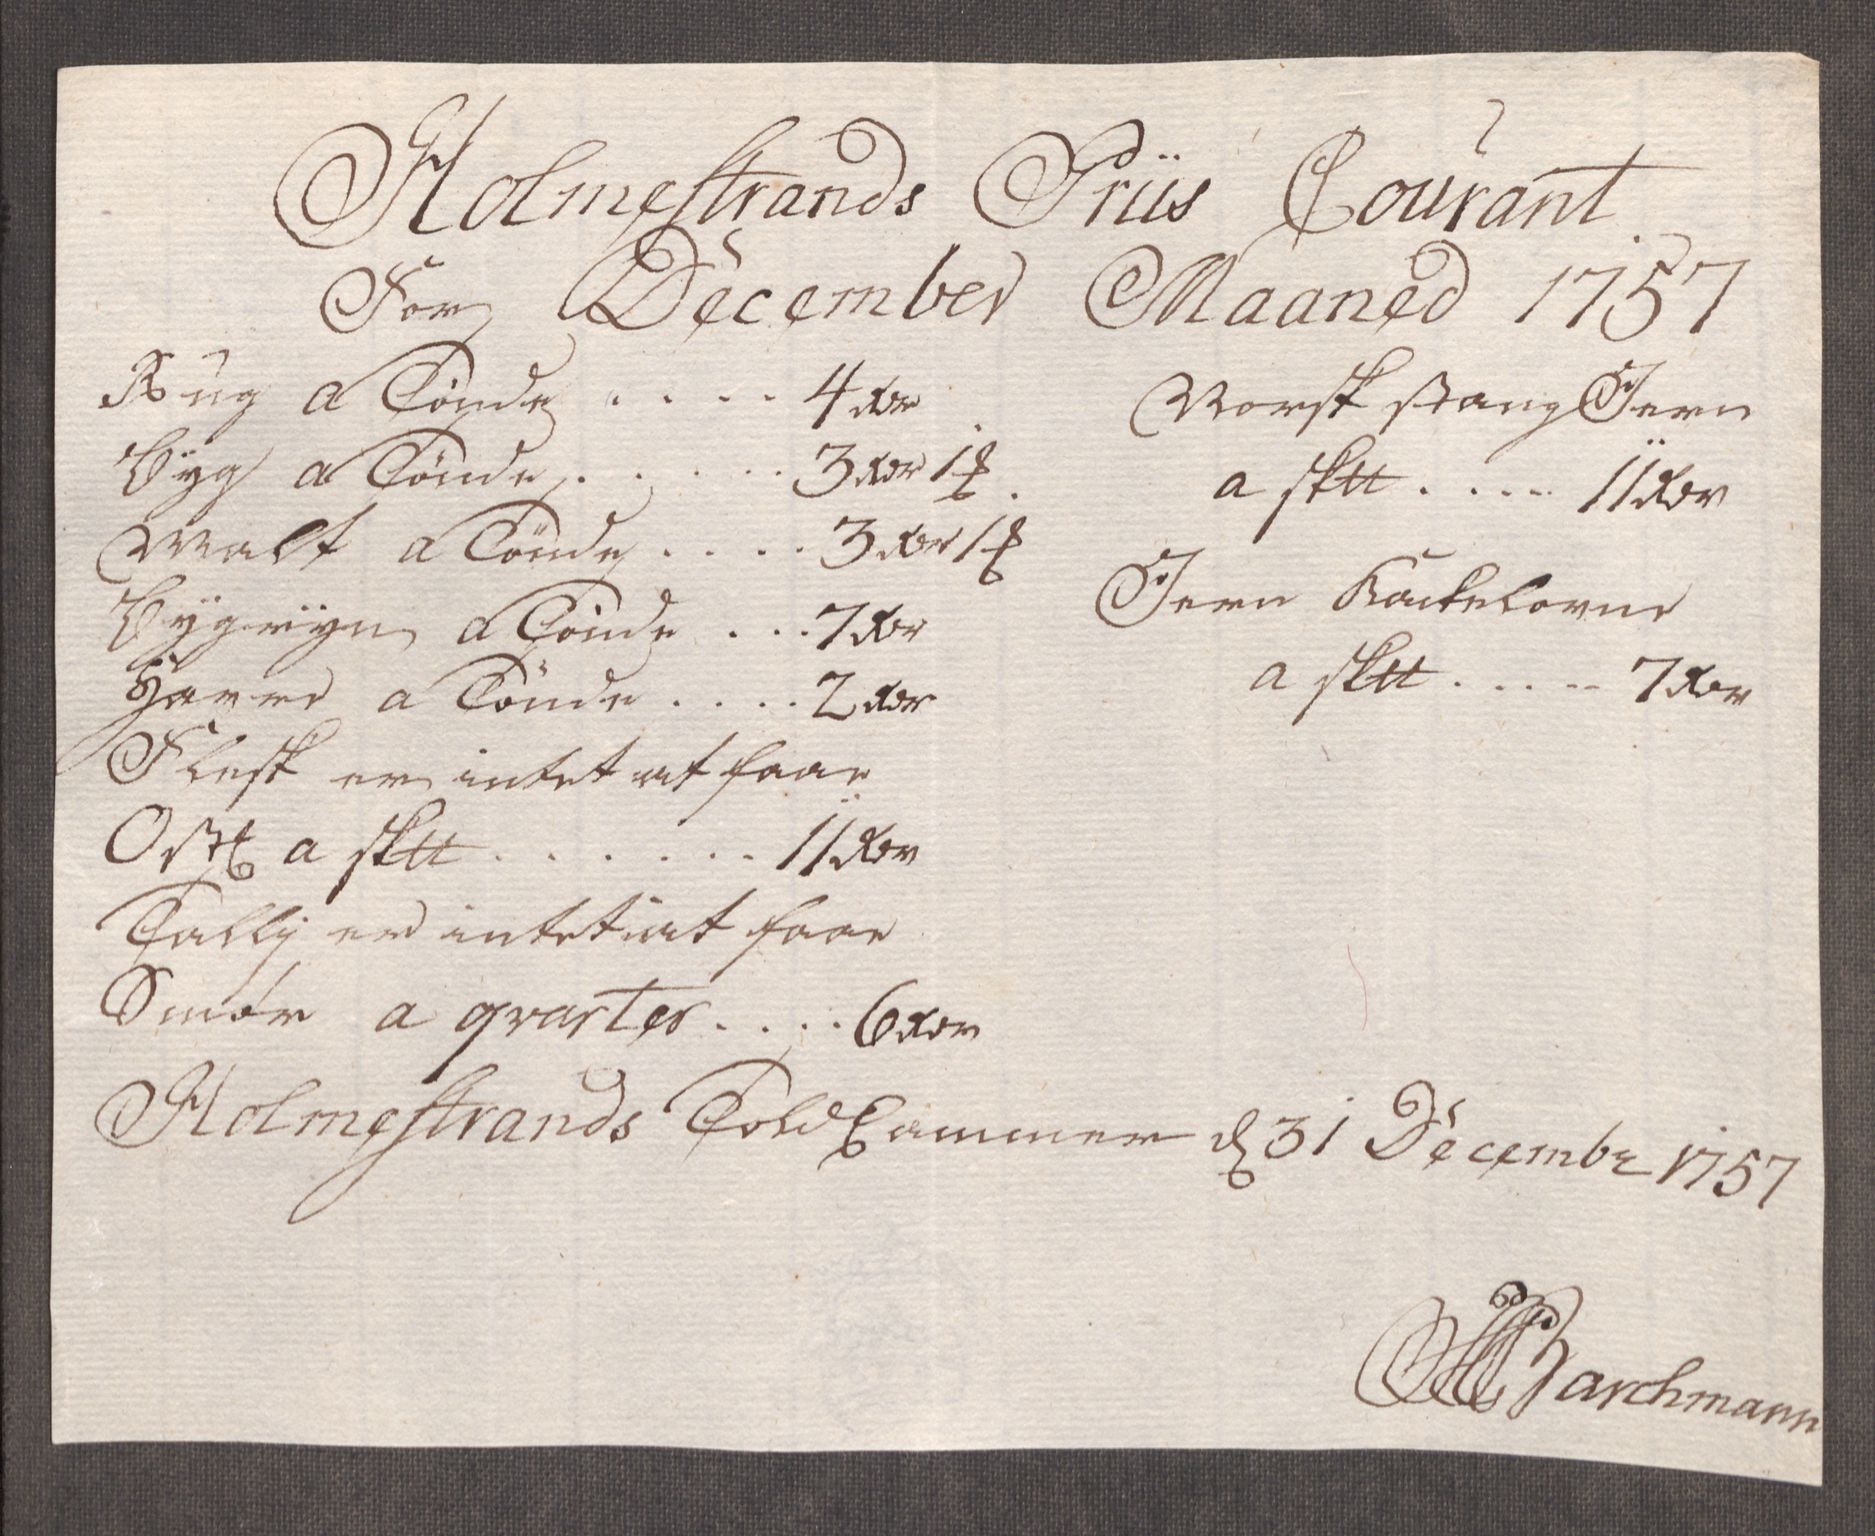 Holmestrands Priis Courant
For December Maaned 1757
Rug a Tönde . . . . 4 Rdr
Byg a Tönde . . . . . 3 Rdr 1
Malt a Tönde . . . . 3 Rdr 1
Byggryn a Tönde . . . 7 Rdr
Havre a Tönde . . . . 2 Rdr
Flesk er intet at faae
Ost a sktt . . . . . . 11 Rdr
Tallig er intet at faae
Smör a qvarter . . . . 6 Rdr
Norsk stang Jern
a sktt . . . . 11 Rdr
Jern Kackelovne
a sktt . . . . . 7 Rdr
Holmestrands Told Cammer d 31 Decembr 1757
Barchmann